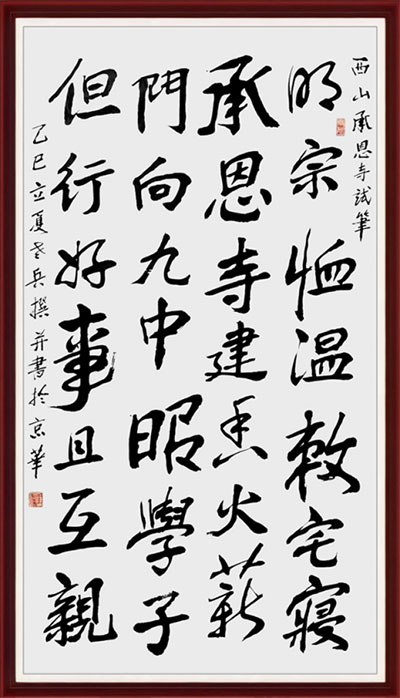 西山承恩寺試筆
明宗恤温敕宅寢
承恩寺建香火薪
門向九中昭學子
但行好事且互親
乙巳立夏老兵撰并書於京華